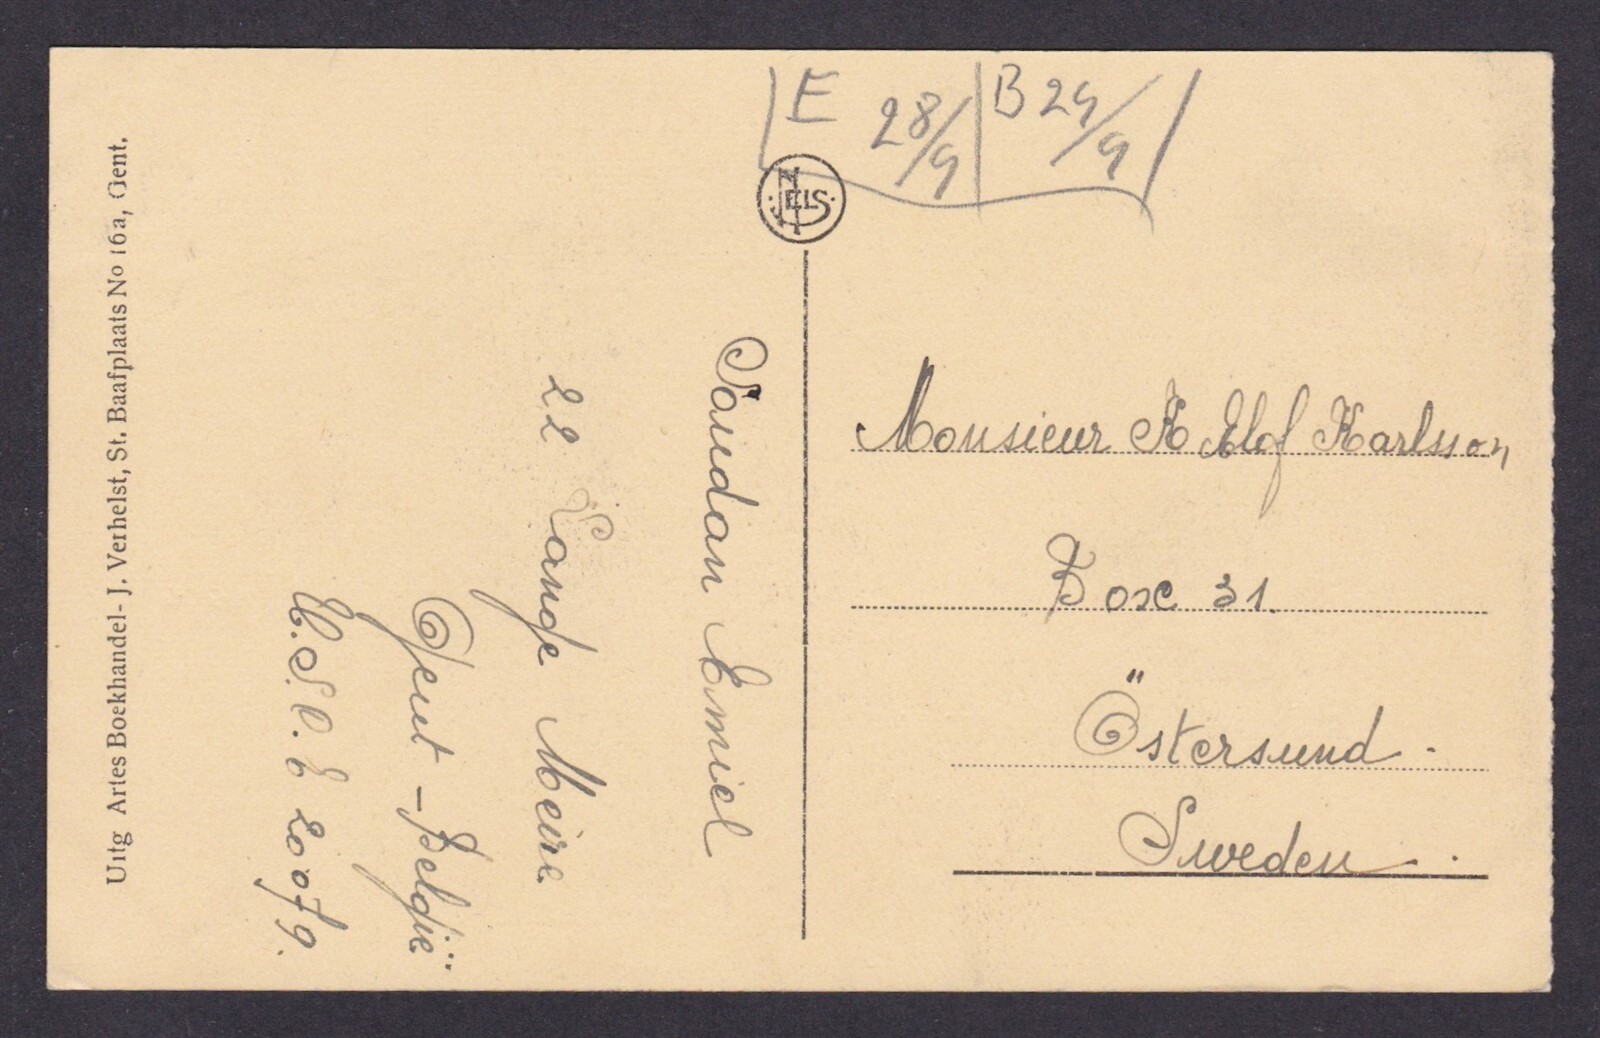 E 28/9 B 29/9
NELS
Uitg Artes Boekhandel- J. Verhelst, St. Baafplaats No 16a, Gent.
Saudan Emiel
22 Lange Meire
Gent - Belgïe
U.S.C.E 20079.
Monsieur K Elof Karlsson
Box 31.
Östersund.
Sweden.